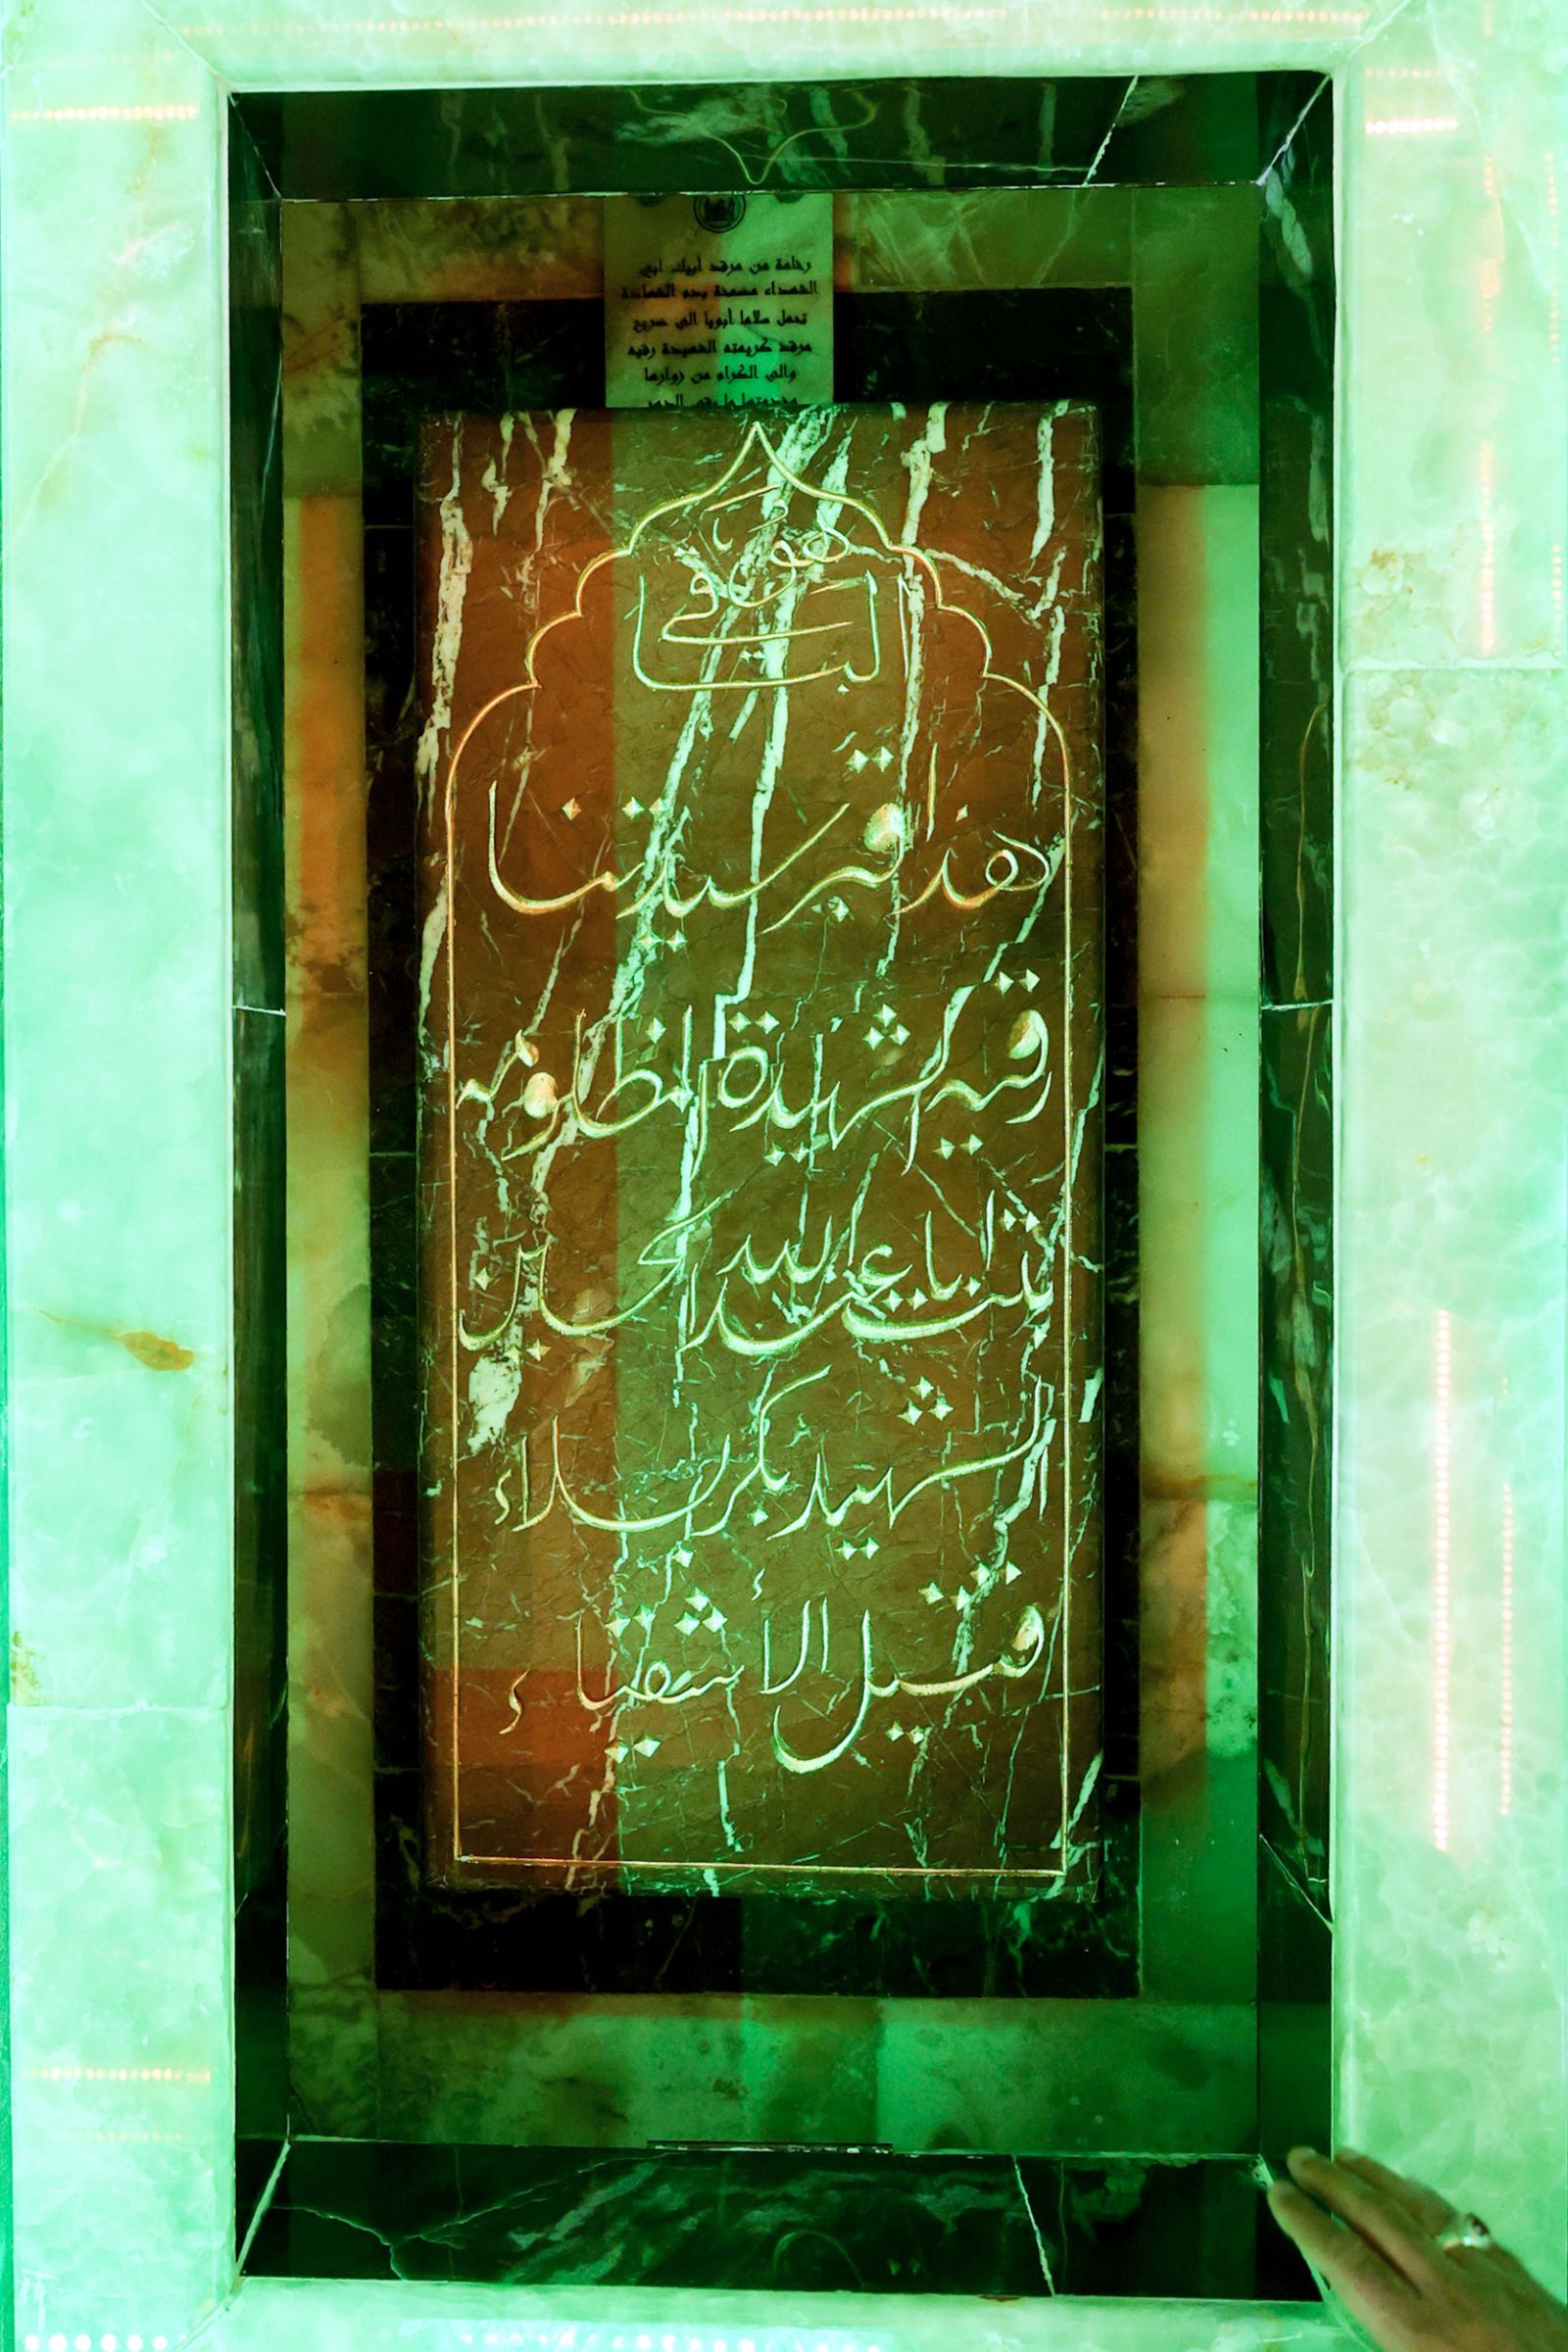 رخامة من مرقد أبيك أبي
الشهداء مضمخة بدم الشهادة
تحمل سلاما أبويا الى ضريح
مرقد كريمته الشهيدة رقية
والى الكرام من زوارها
هو
الباقي
هذا قبر سيدتنا
رقيه الشهيدة المظلومه
بنت ابا عبد الله الحسين
الشهيد بكربلاء
قتيل الأشقياء